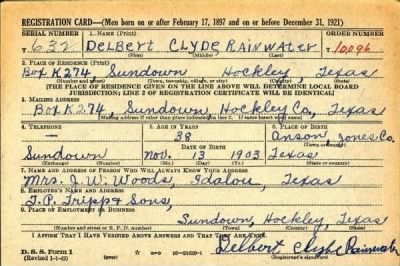 REGISTRATION CARD—(Men born on or after February 17, 1897 and on or before December 31, 1921)
SERIAL NUMBER 1. NAME (Print) ORDER NUMBER
T 632 DELBERT CLYDE RAINWATER 10,096
(First) (Middle) (Last)
2. PLACE OF RESIDENCE (Print)
Box K274, Sundown Hockley, Texas
(Number and street) (Town, township, village, or city) (County) (State)
[THE PLACE OF RESIDENCE GIVEN ON THE LINE ABOVE WILL DETERMINE LOCAL BOARD
JURISDICTION; LINE 2 OF REGISTRATION CERTIFICATE WILL BE IDENTICAL]
3. MAILING ADDRESS
Box K274, Sundown Hockley Co, Texas
[Mailing address if other than place indicated on line 2. If same insert word same]
4. TELEPHONE 5. AGE IN YEARS 6. PLACE OF BIRTH
— 38 Anson Jones Co.
DATE OF BIRTH (Town or county)
Sundown Nov. 13 1903 Texas
(Exchange) (Number) (Mo.) (Day) (Yr.) (State or country)
7. NAME AND ADDRESS OF PERSON WHO WILL ALWAYS KNOW YOUR ADDRESS
Mrs. J. W. Woods, Idalou, Texas
8. EMPLOYER'S NAME AND ADDRESS
T.P. Tripp & Sons,
9. PLACE OF EMPLOYMENT OR BUSINESS
Sundown, Hockley, Texas
(Number and street or R. F. D. number) (Town) (County) (State)
I AFFIRM THAT I HAVE VERIFIED ABOVE ANSWERS AND THAT THEY ARE TRUE.
D. S. S. Form 1 Delbert Clyde Rainwater
(Revised 1-1-42) (over) 16—21630-1 (Registrant's signature)